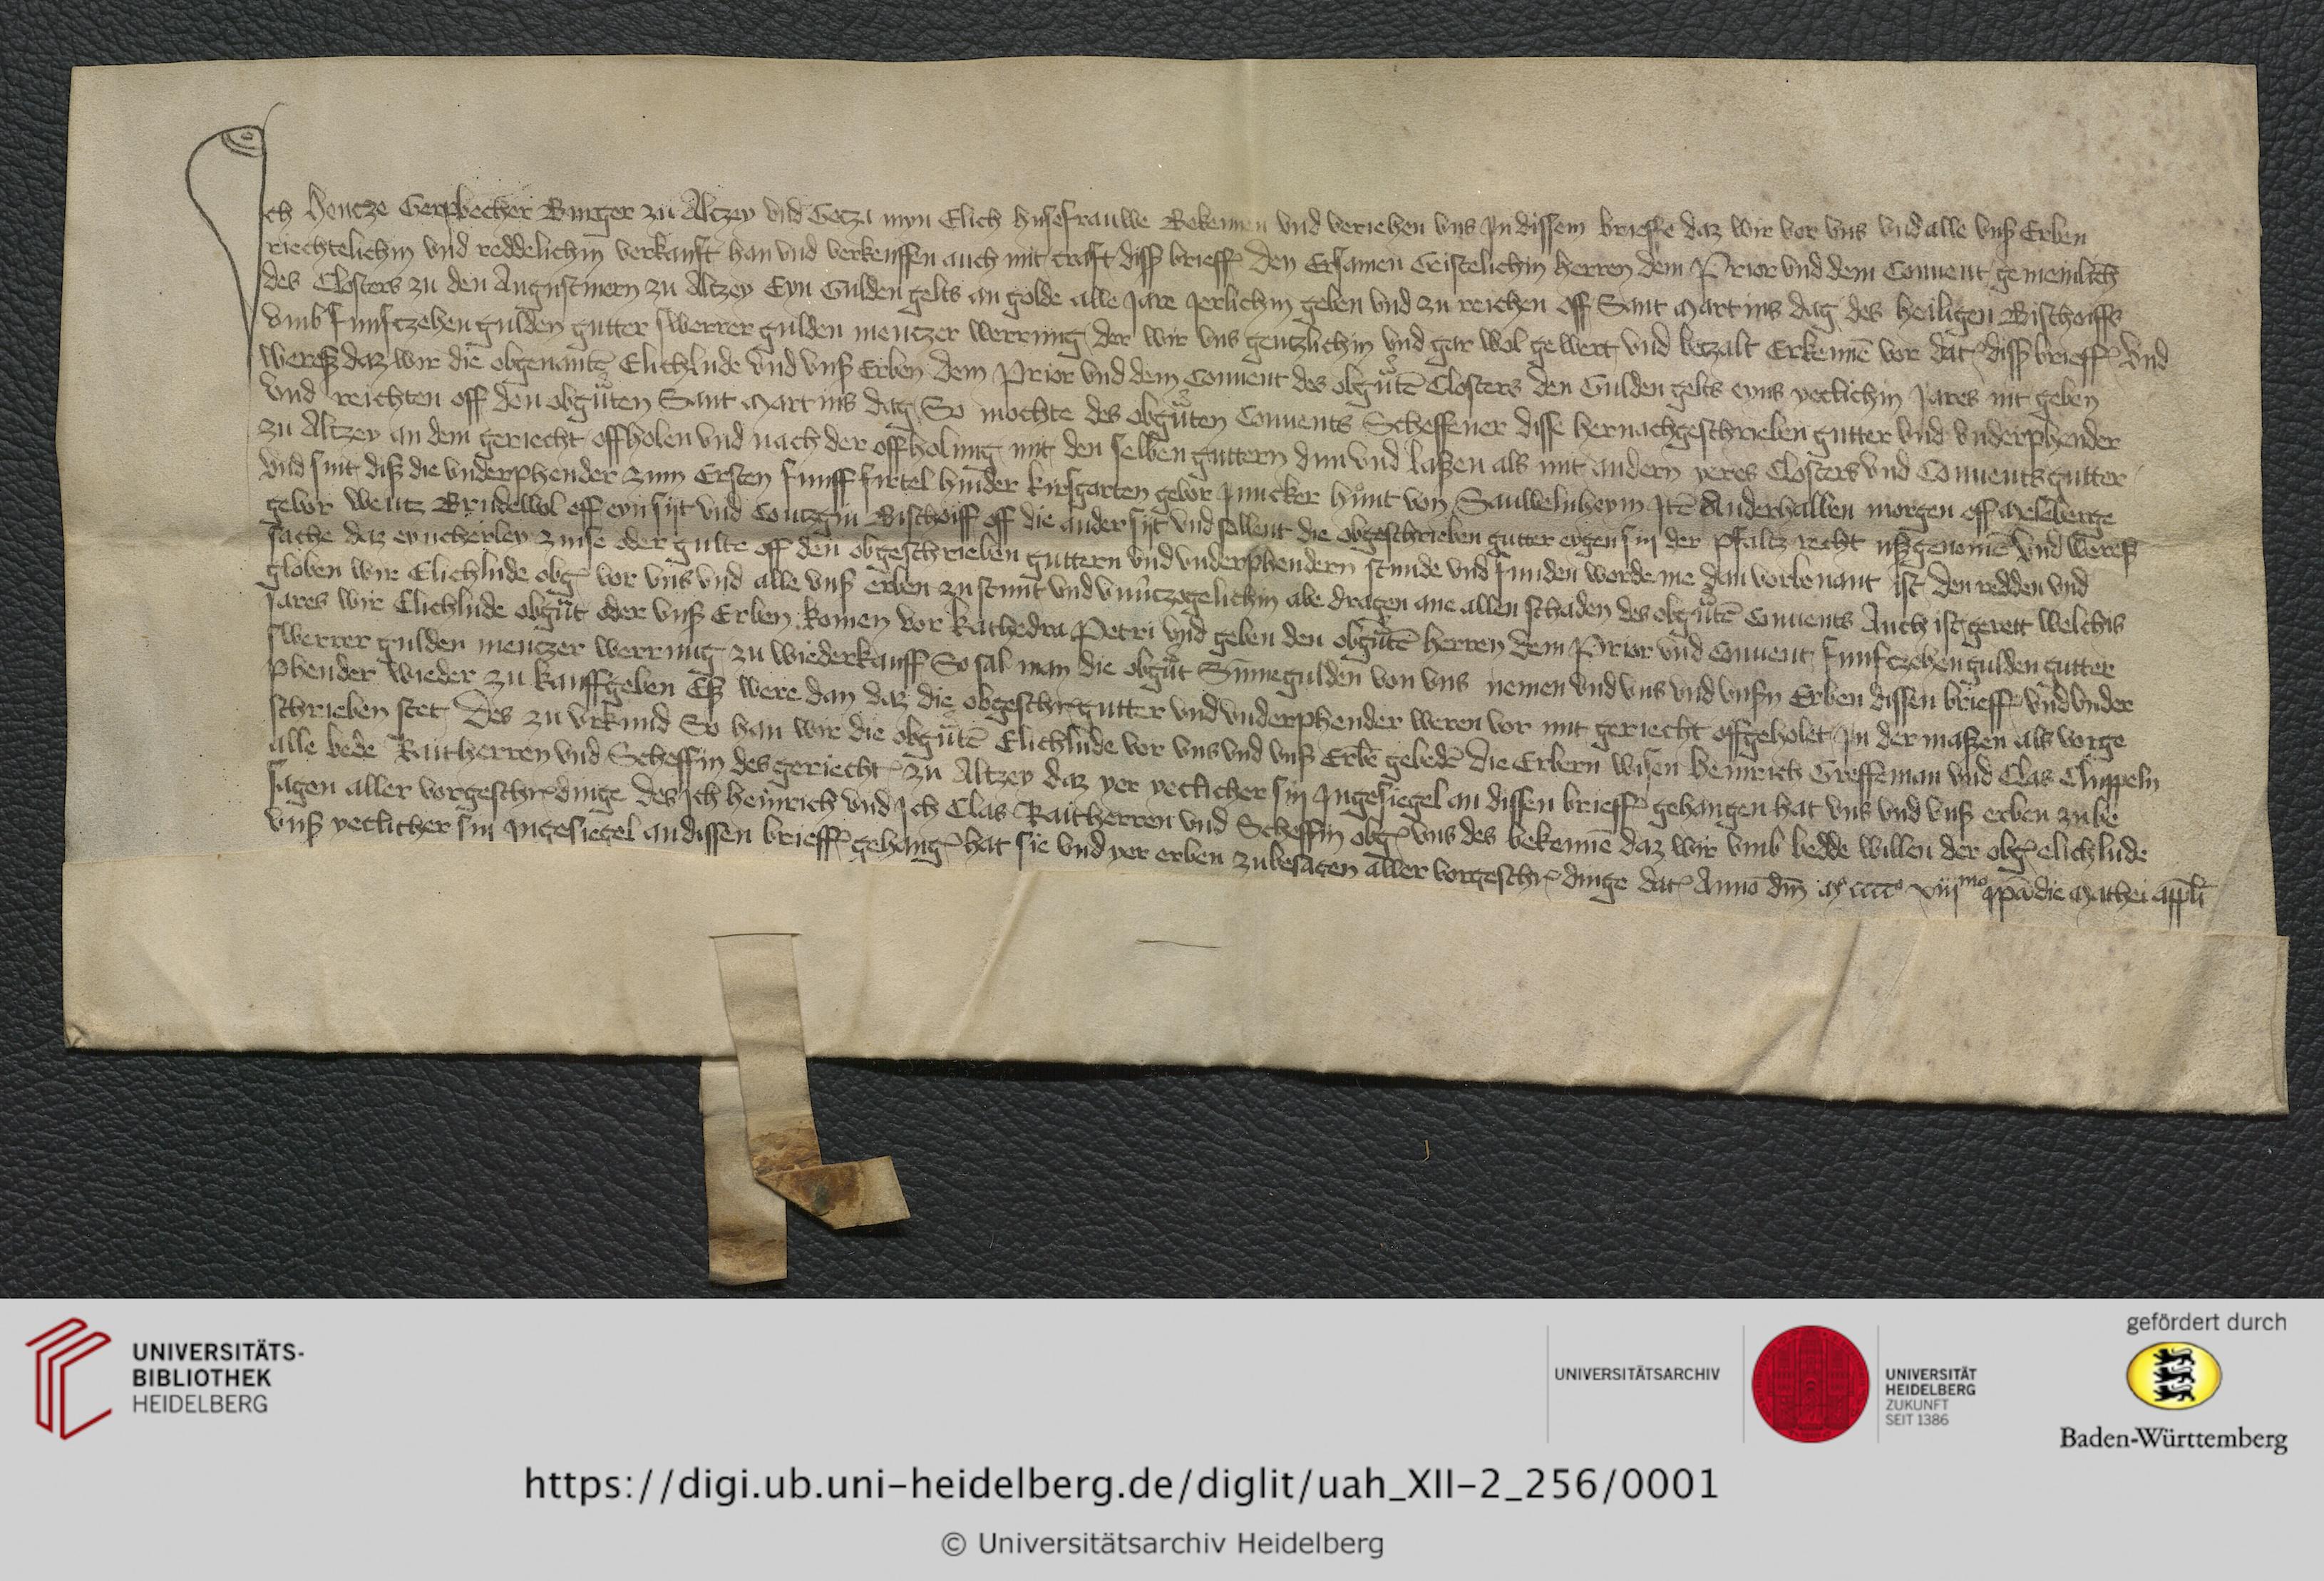 Ich Hentze Gerpbecher Burger zu Altzey vnd Getza myn Elich husefrauwe Bekennen vnd veriehen vns In dissem brieffe daz wir vor vns vnd alle vnß Erben
riechtelichin vnd reddelichin verkauft han vnd verkeuffen auch mit craft diß brieffs den Ersamen Geistelichin herren dem Prior vnd dem Conuent gemeinlich
des Closters zu den Augustinern zu Altzey Eyn Gulden gelts an golde alle Jare Jerlichin geben vnd zu reichen off Sant Martins dag des heiligen Bischoiffs
vmb funfczehen gulden gutter swerrer gulden mentzer werrung der wir vns gentzlichin vnd gar wol gewert vnd betzalt Erkennē vor dat diß brieffs vnd
wereß daz wir die obgenantē Elichlude vnd vnß Erben dem Prior vnd dem Conuent des obgn̄tē Closters den Gulden gelts eyns yetlichin Jares nit geben
vnd reichten off den obgn̄ten Sant Martins dag So mochte des obgn̄ten Conuents Scheffener disse hernachgeschrieben gutter vnd vnderphender
zu Altzey an dem geriecht offholen vnd nach der offholung mit den selben guttern dun vnd laßen als mit andern yeres Closters vnd Conuents gutter
vnd sint diß die vnderphender zum Ersten funff firtel hinder kirsgarten gebor Juncker hunt von Sauwelnheym Itē Anderhalben morgen off Meleberge
gebor Wentz Brudewol off eyn sijt vnd Contzgin Bischoiff off die ander sijt vnd sollent die obgeschrieben gutter eygen sin der pfaltz recht ußgenomē vnd wereß
sache daz eyncherley zinse oder gulte off den obgeschrieben guttern vnd vnderphendern stunde vnd funden worde me dan vorbenant ist den redden vnd
globen wir Elichlude obg vor vns vnd alle vnß erben zu stunt vnd vnuerczogelichin abe dragen ane allen schaden des obgn̄tē Conuents Auch ist gerett welchis
Jares wir Elichlude obgn̄t oder vnß Erben komen vor kathedra Petri vnd geben den obgn̄tē herren dem Prior vnd Conuent funfczehen gulden gutter
swerrer gulden mentzer werrung zu wiederkauff So sal man die obgn̄t Sume gulden von vns nemen vnd vns vnd vnßn Erben dissen brieff vnd vnder
phender wieder zu kauff geben Eß were dan daz die obgeschr gutter vnd vnderphender weren vor mit geriecht offgeholet In der maßen als vorge
schrieben stet Des zu vrkund So han wir die obgn̄tē Elichlude vor vns vnd vnß Erbē gebedē die Erbern wisen Heinrich Greffeman vnd Clas Clippeln
alle bede Raitherren vnd Scheffin des geriecht zu Altzey daz yer yetlicher sin Ingesiegel an dissen brieff gehangen hat vns vnd vnß erben zu be
sagen aller vorgeschr dinge des Ich Heinrich vnd Ich Clas Raitherren vnd Scheffin obg vns des bekennē daz wir vmb bedde willen der obg elichlude
vnß yetlicher sin Ingesiegel an dissen brieff gehang hat sie vnd yer erben zu besagen aller vorgeschr dinge dat Anno dm̄ Mº ccccº xiijmo ipā die Mathei appl̄i
UNIVERSITÄTS-
BIBLIOTHEK
HEIDELBERG
UNIVERSITÄTSARCHIV
UNIVERSITÄT
HEIDELBERG
ZUKUNFT
SEIT 1386
gefördert durch
Baden-Württemberg
https://digi.ub.uni-heidelberg.de/diglit/uah_XII-2_256/0001
© Universitätsarchiv Heidelberg